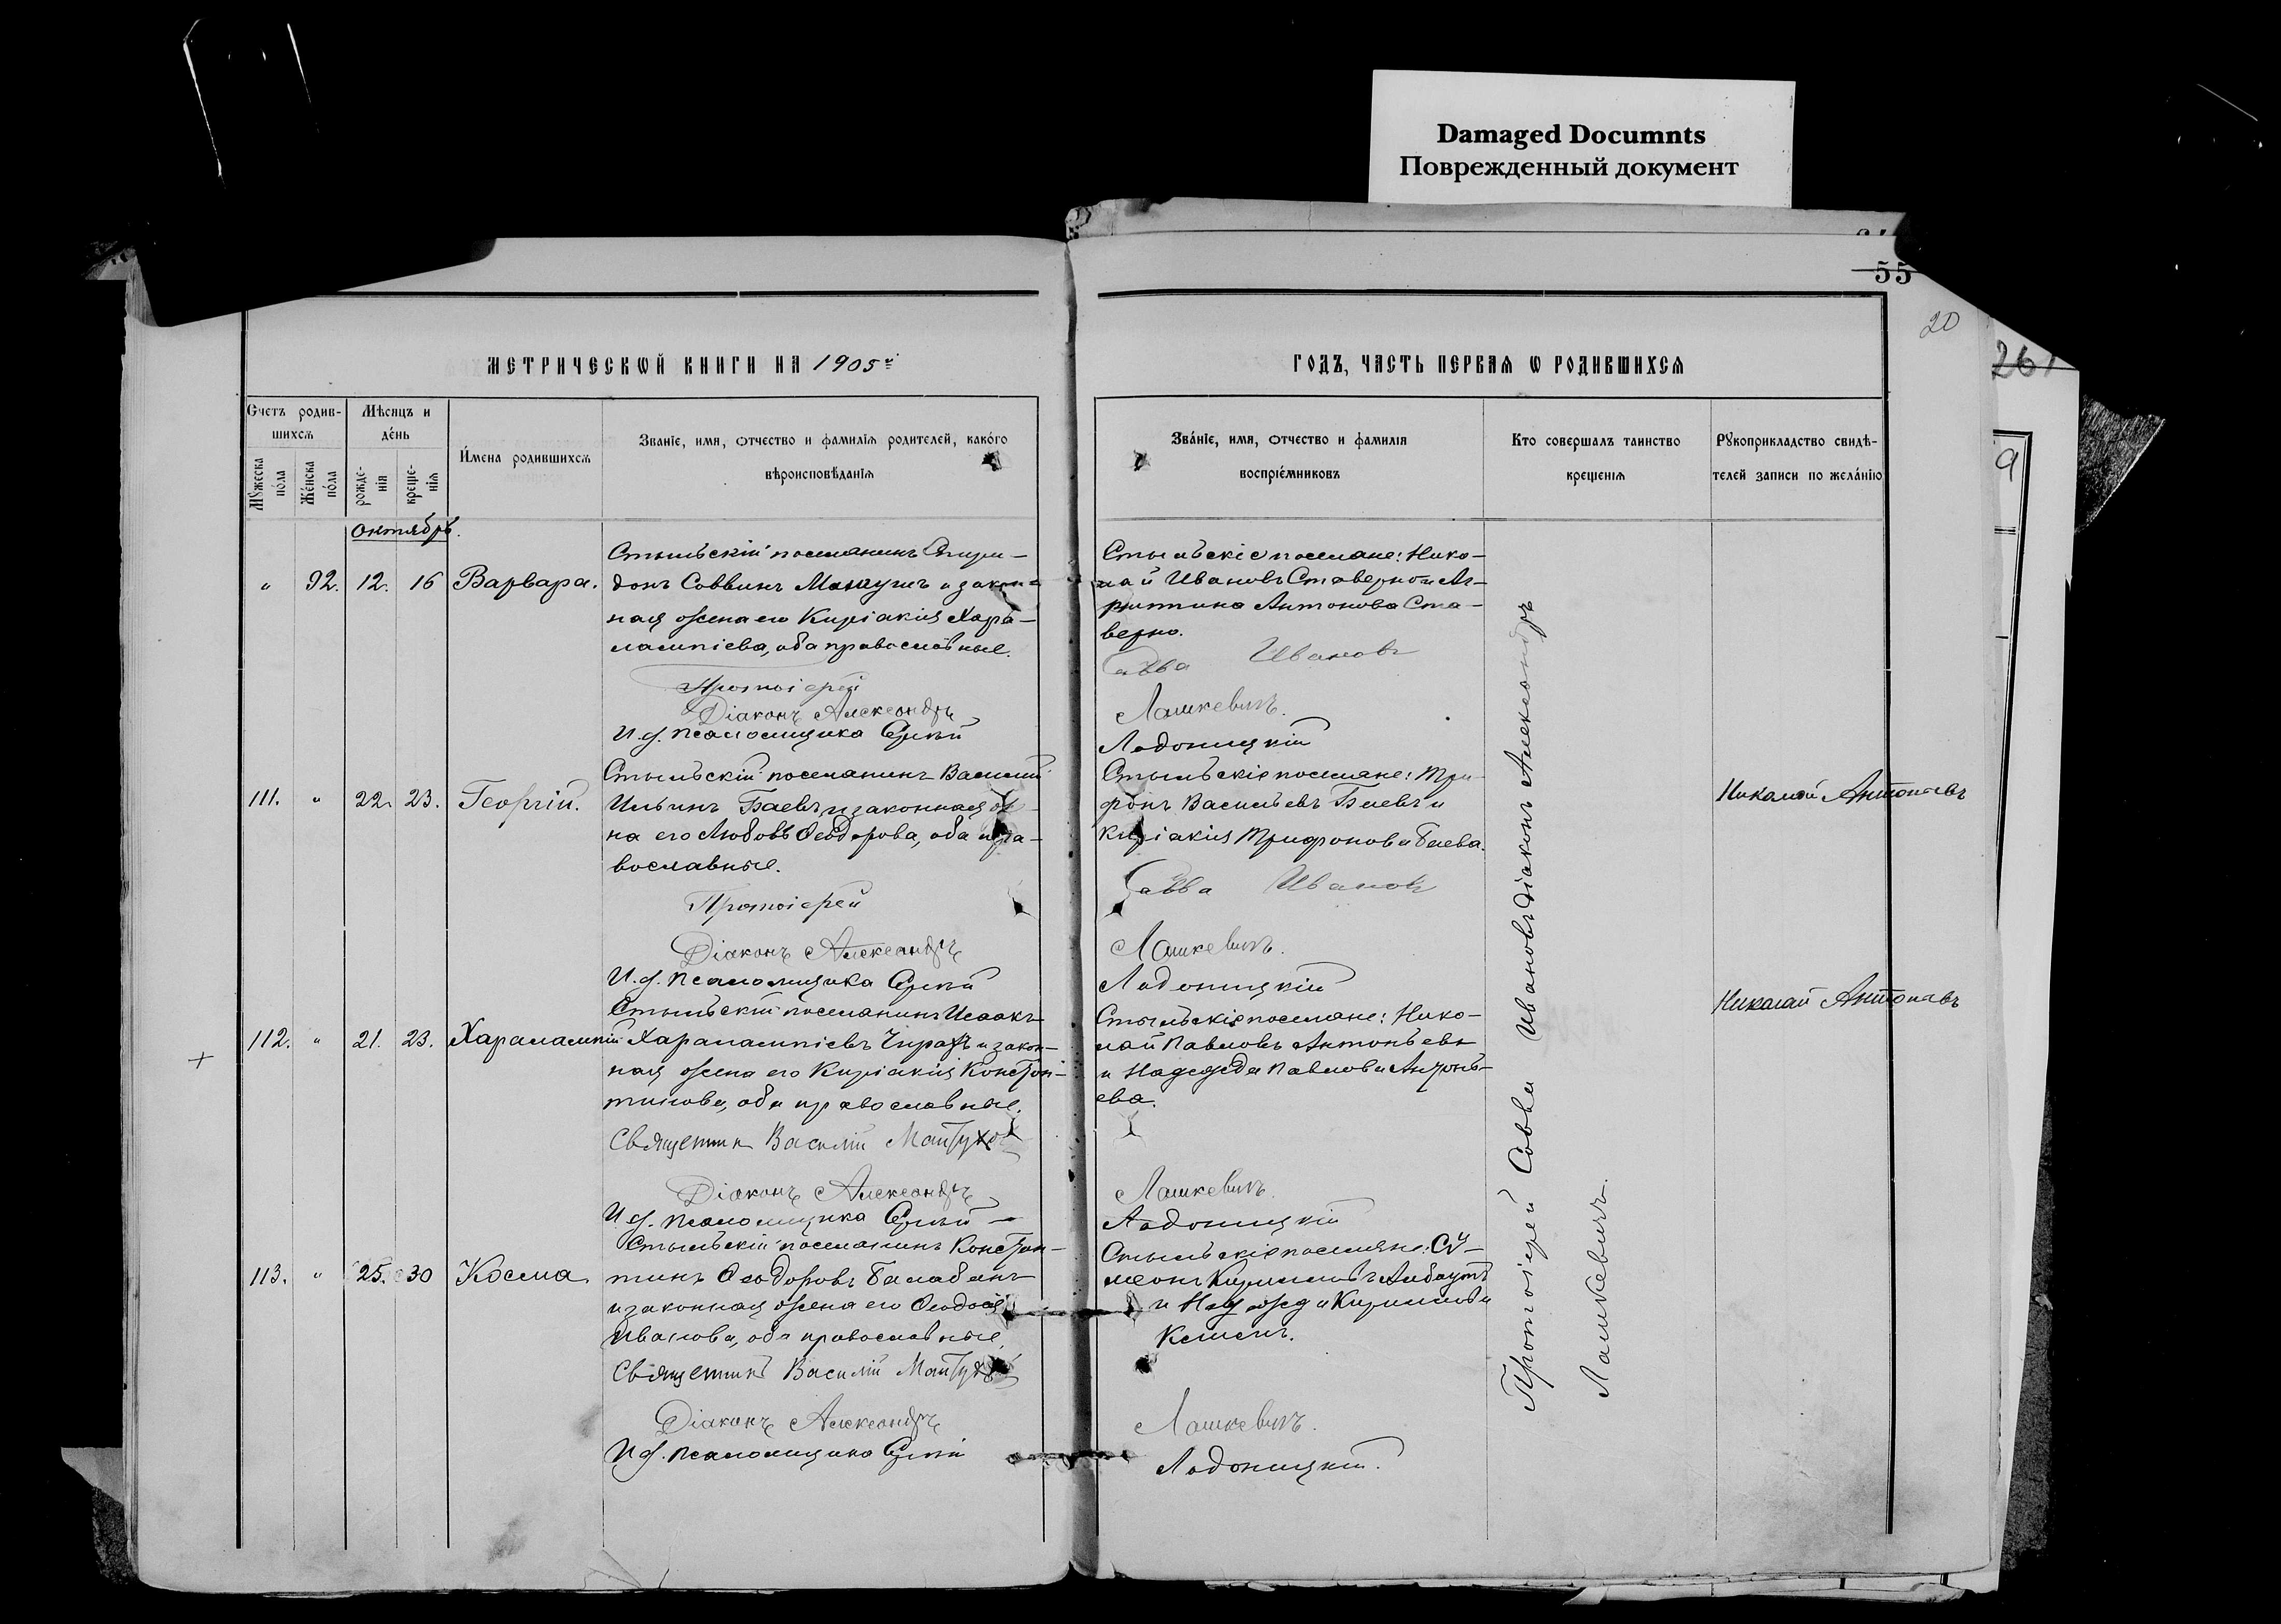 Damaged Documnts
Поврежденный документ
55
20
261
9
МЕТРИЧЕСКѠЙ КНИГИ НА 1905й
ГОДЪ, ЧАСТЬ ПЕРВАѦ Ѡ РОДИВШИХСѦ
Счетъ родив-
шихсѧ
Мѣсяцъ и
де́нь
Мꙋжеска
по́ла
Же́нска
по́ла
рожде-
нїѧ
креще-
нїѧ
И́мена родившихсѧ
Званїе, имя, ѻтчество и фамилїѧ родителей, како́го
вѣроисповѣданїѧ
Зва́нїе, имя, ѻтчество и фамилїя
воспрїе́мниковъ
Кто совершалъ таинство
крещенїѧ
Рꙋкоприкладство свидѣ-
телей записи по жела́нїю
Октябрь.
" 92. 12. 16 Варвара.
Стыльскій поселянинъ Спири-
донъ Саввинъ и закон-
ная жена его Киріакія Хара-
лампіева, оба православные.
Протоіерей
Діаконъ Александръ
И. д. псаломщика
Стыльскіе поселяне: Нико-
лай Ивановъ Ставерно и Аг-
риппина Антонова Ста-
верно.
Савва Ивановъ
Лашкевичъ.
Ладоницкій
111. " 22. 23. Георгій.
Стыльскій поселянинъ Василій
Ильинъ Баевъ и законная же-
на его Любовь Ѳеодорова, оба пра-
вославные.
Протоіерей
Діаконъ Александръ
И. д. псаломщика
Стыльскіе поселяне: Три-
фонъ Васильевъ Баевъ и
Киріакія Трифонова Баева.
Савва Ивановъ
Лашкевичъ.
Ладоницкій
Николай Антоновъ
112. " 21. 23. Харалампій
Стыльскій поселянинъ Исаакъ
Харалампіевъ Чирахъ и закон-
ная жена его Киріакія Констан-
тинова, оба православные.
Священникъ Василій
Діаконъ Александръ
И. д. псаломщика
Стыльскіе поселяне: Нико-
лай Павловъ Антоньевъ
и Надежда Павлова Антонь-
ева.
Лашкевичъ.
Ладоницкій
Николай Антоновъ
+
113. " 25. 30 Косма
Стыльскій поселянинъ Констан-
тинъ Ѳеодоровъ Балабанъ
и законная жена его Ѳеодосія
Иванова, оба православные.
Священникъ Василій
Діаконъ Александръ
И. д. псаломщика
Стыльскіе поселяне: Сѵ-
меонъ Кирилловъ
и Надежда Кириллова
Лашкевичъ.
Ладоницкій.
Протоіерей Савва Ивановъ Діаконъ Александръ
Лашкевичъ.